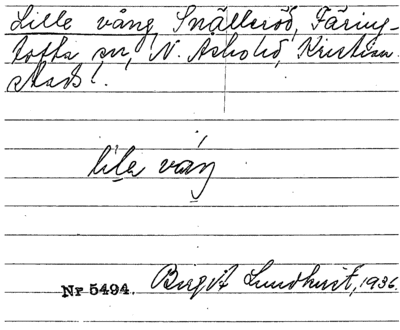 Lille vång, Snälleröd, Färing-
tofta sn, N. Åsbo hd, Kristian-
stads l.
lila váŋ
Nr 5494. Birgit Lundkvist, 1936.